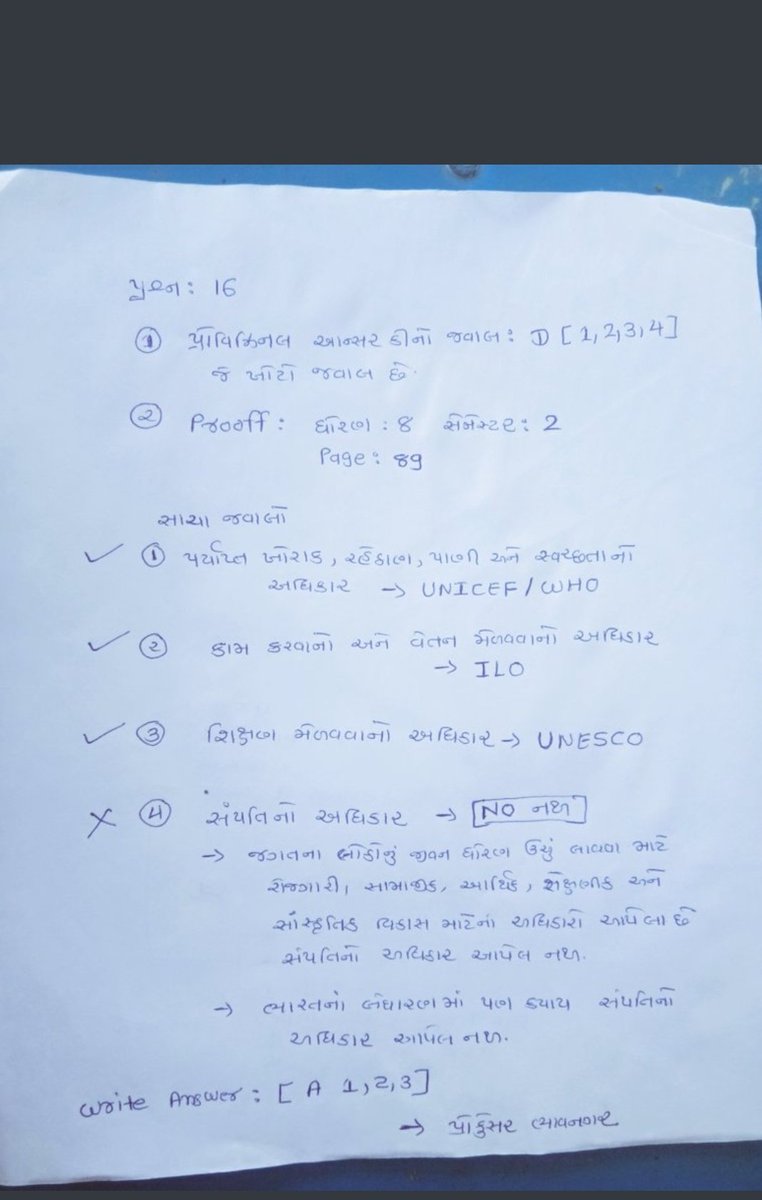 પ્રશ્ન: 16
① પ્રોવિઝિનલ આન્સર કીનો જવાબ: D [1,2,3,4]
જે ખોટો જવાબ છે.
② Prooff: ધોરણ: 8 સેમેસ્ટર: 2
Page: 89
સાચા જવાબો
✓ ① પર્યાપ્ત ખોરાક, રહેઠાણ, પાણી અને સ્વચ્છતાનો
અધિકાર → UNICEF/WHO
✓ ② કામ કરવાનો અને વેતન મેળવવાનો અધિકાર
→ ILO
✓ ③ શિક્ષણ મેળવવાનો અધિકાર → UNESCO
✗ ④ સંપતિનો અધિકાર → NO નથી
→ જગતના લોકોનું જીવન ધોરણ ઉચું લાવવા માટે
રોજગારી, સામાજીક, આર્થિક, શૈક્ષણીક અને
સાંસ્કૃતિક વિકાસ માટેનાં અધિકારો આપેલા છે
સંપતિનો અધિકાર આપેલ નથી.
→ ભારતનાં બંધારણમાં પણ કયાય સંપતિનો
અધિકાર આપેલ નથી.
Write Answer: [A 1,2,3]
→ પ્રોફેસર ભાવનગર